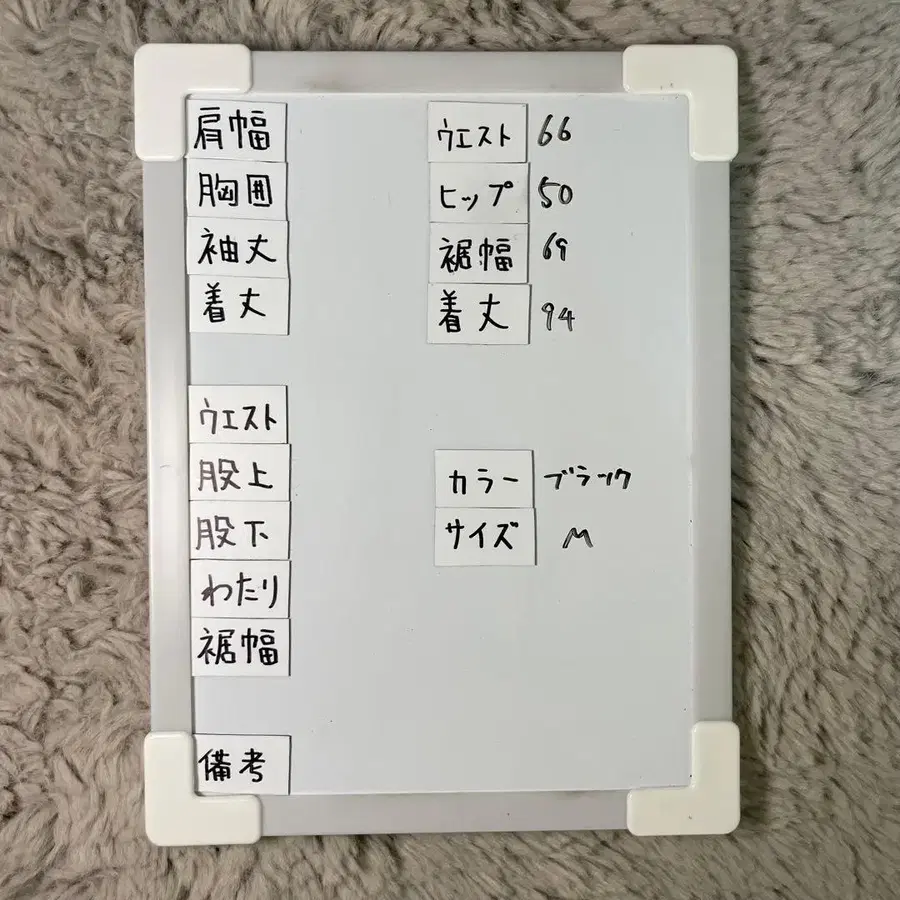 肩幅
胸囲
袖丈
着丈
ウエスト
股上
股下
わたり
裾幅
備考
ウエスト 66
ヒップ 50
裾幅 69
着丈 94
カラー ブラック
サイズ M